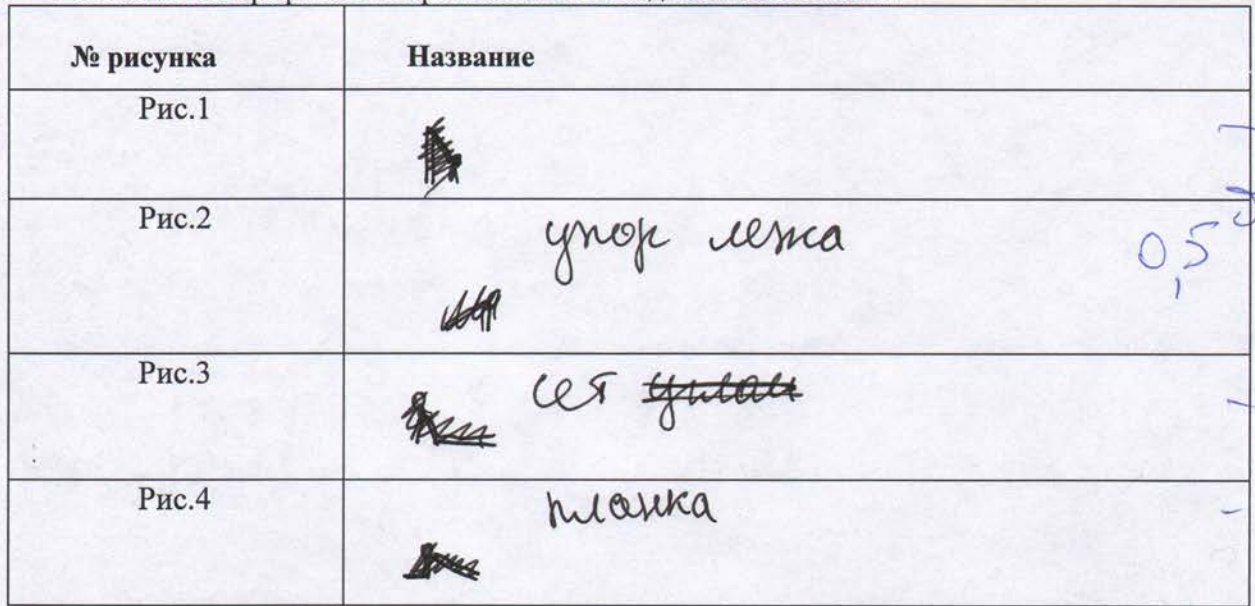 № рисунка Название
Рис.1
Рис.2 упор лежа 0,5
Рис.3 сет
Рис.4 планка